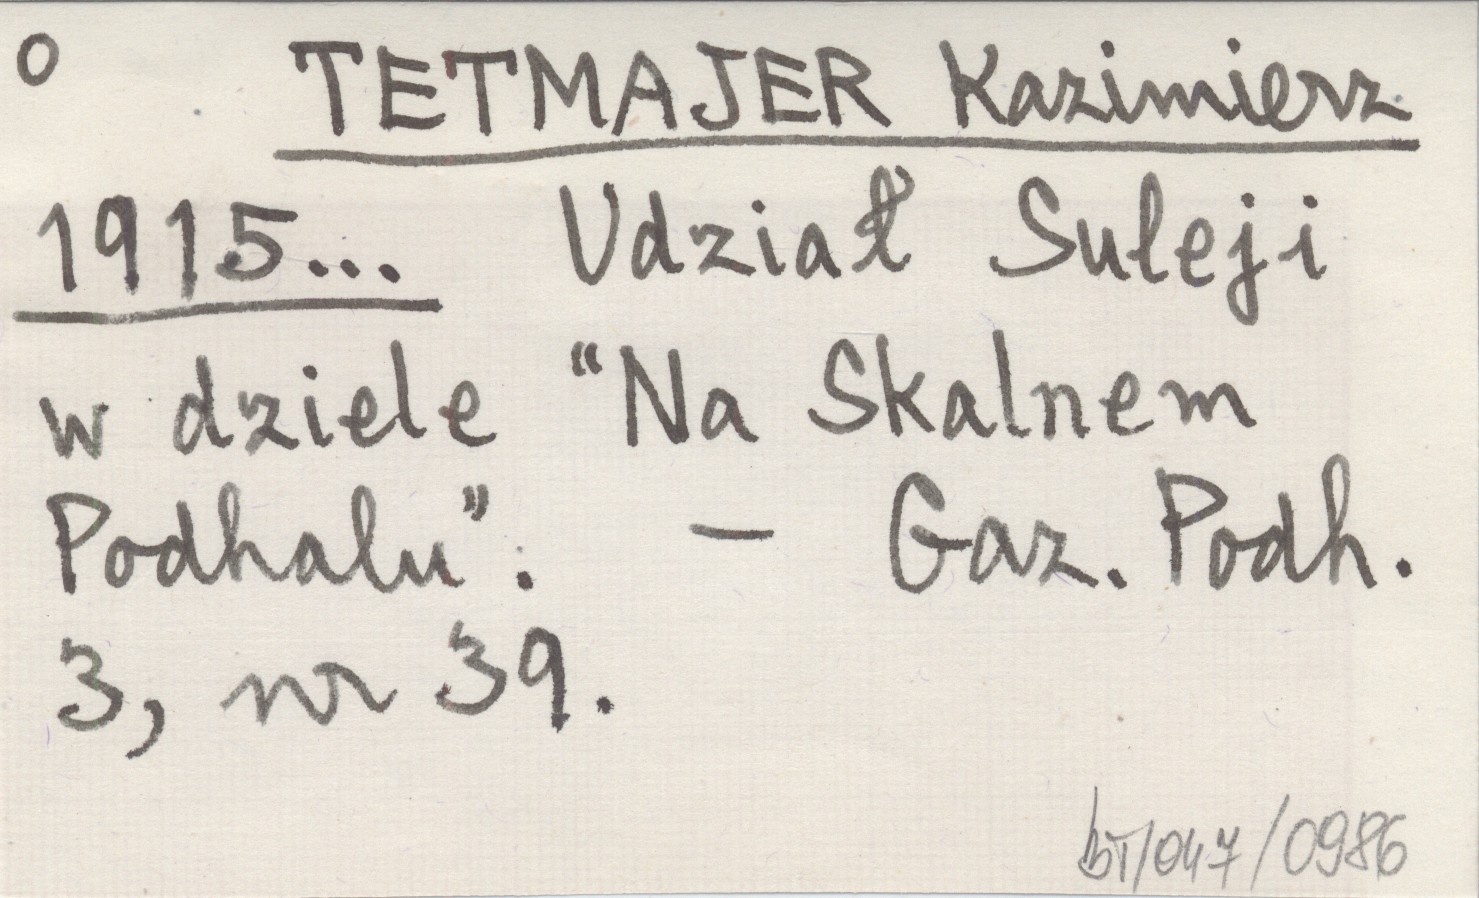 o TETMAJER Kazimierz
1915... Udział Suleji
w dziele "Na Skalnem
Podhalu". — Gaz. Podh.
3, nr 39.
bT/047/0986